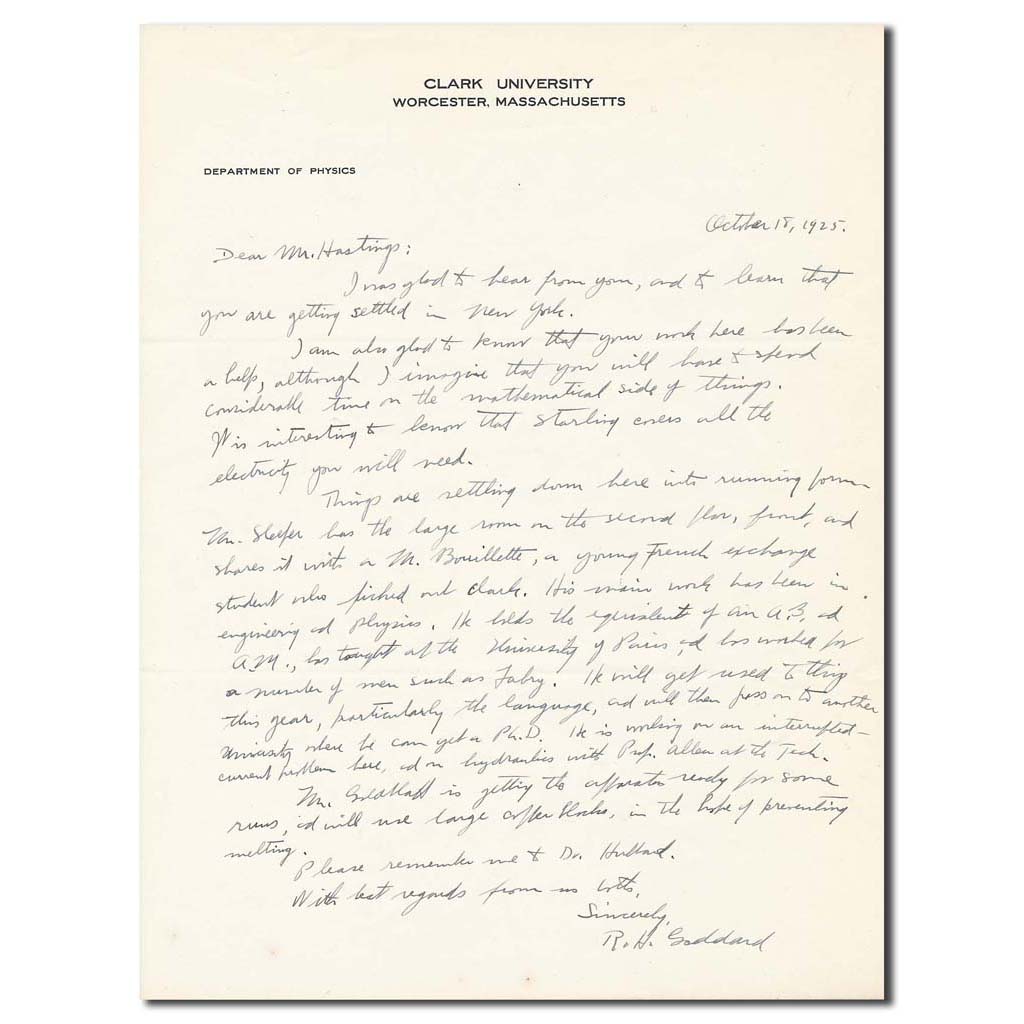 CLARK UNIVERSITY
WORCESTER, MASSACHUSETTS
DEPARTMENT OF PHYSICS
October 18, 1925.
Dear Mr. Hastings:
I was glad to hear from you, and to learn that
you are getting settled in New York.
I am also glad to know that your work here has been
a help, although I imagine that you will have to spend
considerable time on the mathematical side of things.
It is interesting to know that Starling covers all the
electricity you will need.
Things are settling down here into running form
Mr. Sleeper has the large room on the second floor, front, and
shares it with a M. Bouillette, a young French exchange
student who picked out Clark. His main work has been in
engineering and physics. He holds the equivalent of an A.B. and
A.M., has taught at the University of Paris, and has worked for
a number of men such as Fabry. He will get used to things
this year, particularly the language, and will then pass on to another
University where he can get a Ph.D. He is working on an interrupted-
current problem here, and on hydraulics with Prof. Allen at the Tech.
Mr. is getting the apparatus ready for some
runs, and will use large copper blocks, in the hope of preventing
melting.
Please remember me to Dr. Hubbard.
With best regards from us both,
Sincerely,
R. H. Goddard